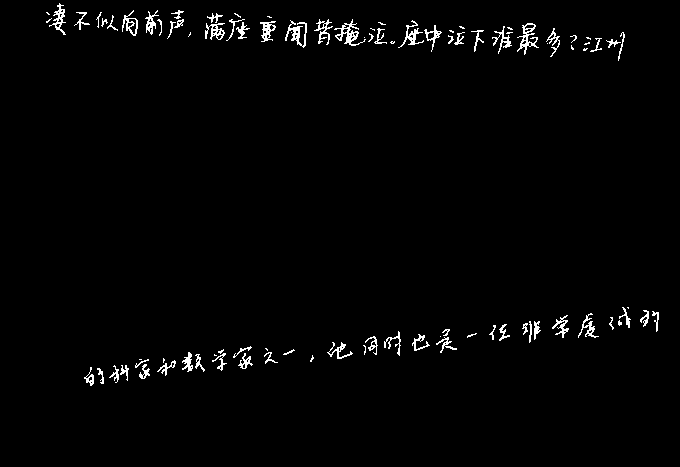 凄不似向前声,满座重闻皆掩泣。座中泣下谁最多?江州
的科家和数学家之一,他同时也是一位非常虔诚的